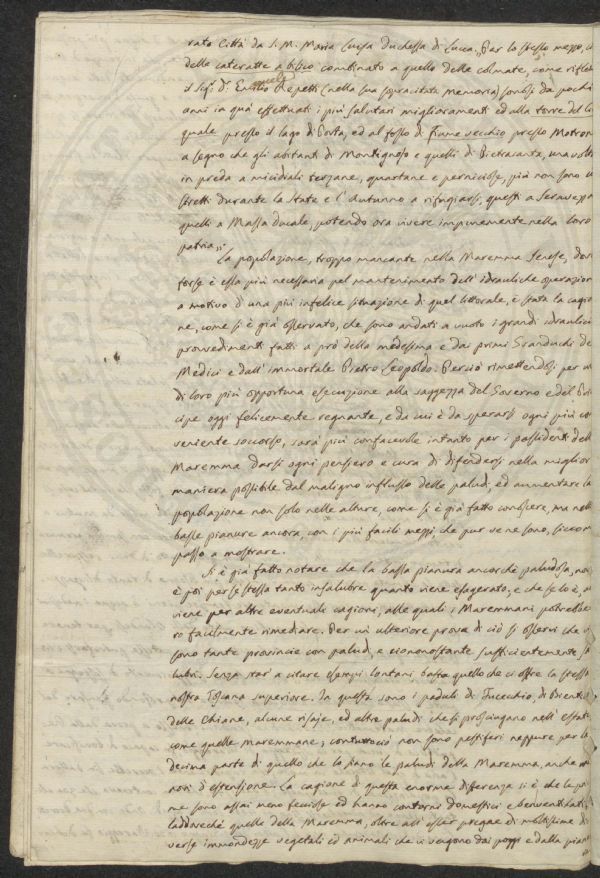 rato Città da S. M. Maria Luisa Duchessa di Lucca. Per lo stesso mezzo,
delle cateratte a bilico combinato a quello delle colmate, come riflet
il Sig.r D.r Emilio Repetti (nella sua sopracitata memoria) sonosi da pochi
anni in quà effettuati i più salutari miglioramenti ed alla torre del
quale presso il lago di Porta, ed al fosso di fiume vecchio presso Motron
a segno che gli abitanti di Montignoso e quelli di Pietrasanta, una volta
in preda a micidiali terzane, quartane e perniciose, più non sono
stretti durante la State e l'Autunno a rifugiarsi, questi a Seravezza
quelli a Massa ducale, potendo ora vivere impunemente nella loro
patria,,
La popolazione, troppo mancante nella Maremma Senese, dov
forse è essa più necessaria pel mantenimento dell'idrauliche operazion
a motivo d'una più infelice situazione di quel littorale, è stata la cagio
ne, come si è già osservato, che sono andati a vuoto i grandi idraulici
provvedimenti fatti a prò della medesima e dai primi Granduchi de
Medici e dall'immortale Pietro Leopoldo. Perciò rimettendosi per
di loro più opportuna esecuzione alla saggezza del Governo e del Prin
cipe oggi felicemente regnante, e da cui è da sperarsi ogni più con
veniente soccorso, sarà più confacevole intanto per i possidenti dell
Maremma darsi ogni pensiero e cura di difendersi nella miglior
maniera possibile dal maligno influsso delle paludi, ed aumentare la
popolazione non solo nelle alture, come si è già fatto conoscere, ma nelle
basse pianure ancora, con i più facili mezzi che pur ve ne sono, siccom
passo a mostrare.
Si è già fatto notare che la bassa pianura ancorchè paludosa, non
è poi per se stessa tanto insalubre quanto viene esagerato, e che se lo è, av
viene per altre eventuali cagioni, alle quali i Maremmani potrebbe
ro facilmente rimediare. Per un'ulteriore prova di ciò si osservi che vi
sono tante provincie con paludi, e ciononostante sufficientemente sa
lubri. Senza star' a citare esempi lontani, basta quello che ci offre la stessa
nostra Toscana superiore. In questa sono i paduli di Fucecchio, di Bientina
delle Chiane, alcune risaje, ed altre paludi che si prosciugano nell'estate
come quelle maremmane; contuttociò non sono pestiferi neppure per la
decima parte di quello che lo siano le paludi della Maremma, anche
nori d'estensione. La cagione di questa enorme differenza si è che le pri
me sono assai meno fecciose ed hanno contorni domestici e ben ventilati,
laddovechè quelle della Maremma, oltre all'esser pregne di moltissime di
verse immondezze vegetali ed animali che vi vengono dai poggi e dalla pian